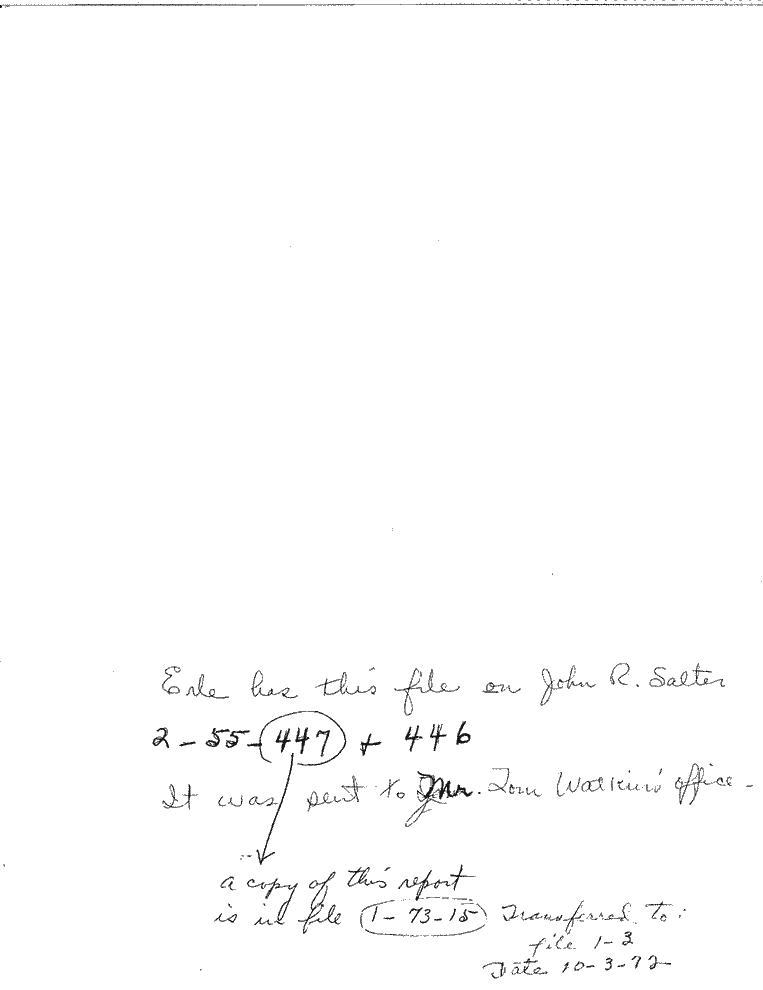 Erle has this file on John R. Salter
2-55-447 + 446
It was sent to Mr. Tom Watkins' office -
a copy of this report
is in file 1-73-15 Transferred to:
file 1-3
Date 10-3-72